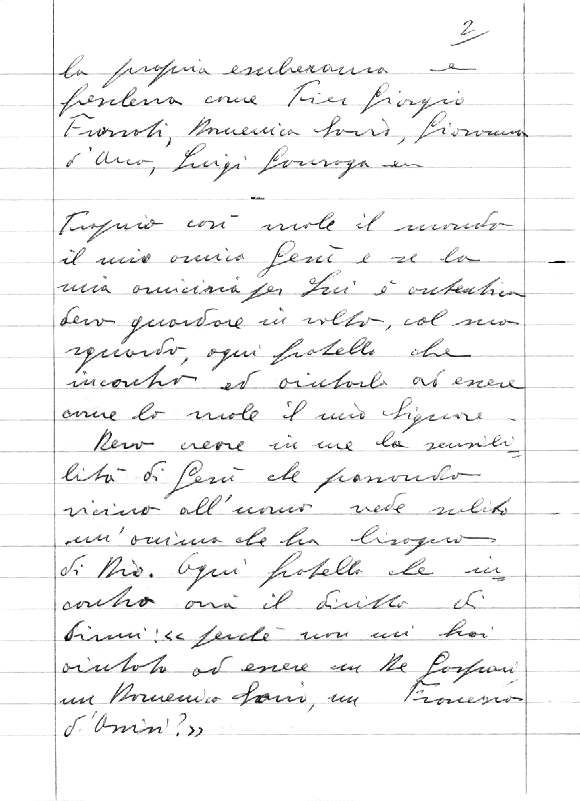 2
la propria esuberanza e
freschezza come Pier Giorgio
Frassati, Domenico Savio, Giovanna
d'Arco, Luigi Gonzaga e
Proprio così vuole il mondo
il mio amico Gesù e se la
mia amicizia per Lui è autentica
devo guardare in volto, col suo
sguardo, ogni fratello che
incontro ed aiutarlo ad essere
come lo vuole il mio Signore.
Devo creare in me la sensibi-
lità di Gesù che passando
vicino all'uomo vede subito
un'anima che ha bisogno
di Dio. Ogni fratello che in-
contro avrà il diritto di
dirmi: «perché non mi hai
aiutato ad essere un De Gasperi,
un Domenico Savio, un Francesco
d'Assisi?»